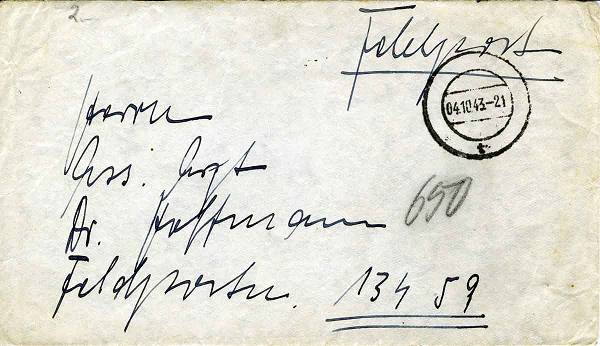 2.-
Feldpost
04.10.43.-21
t
Herrn
Ass. Arzt
Dr. Hoffmann 650
Feldpostn. 13459